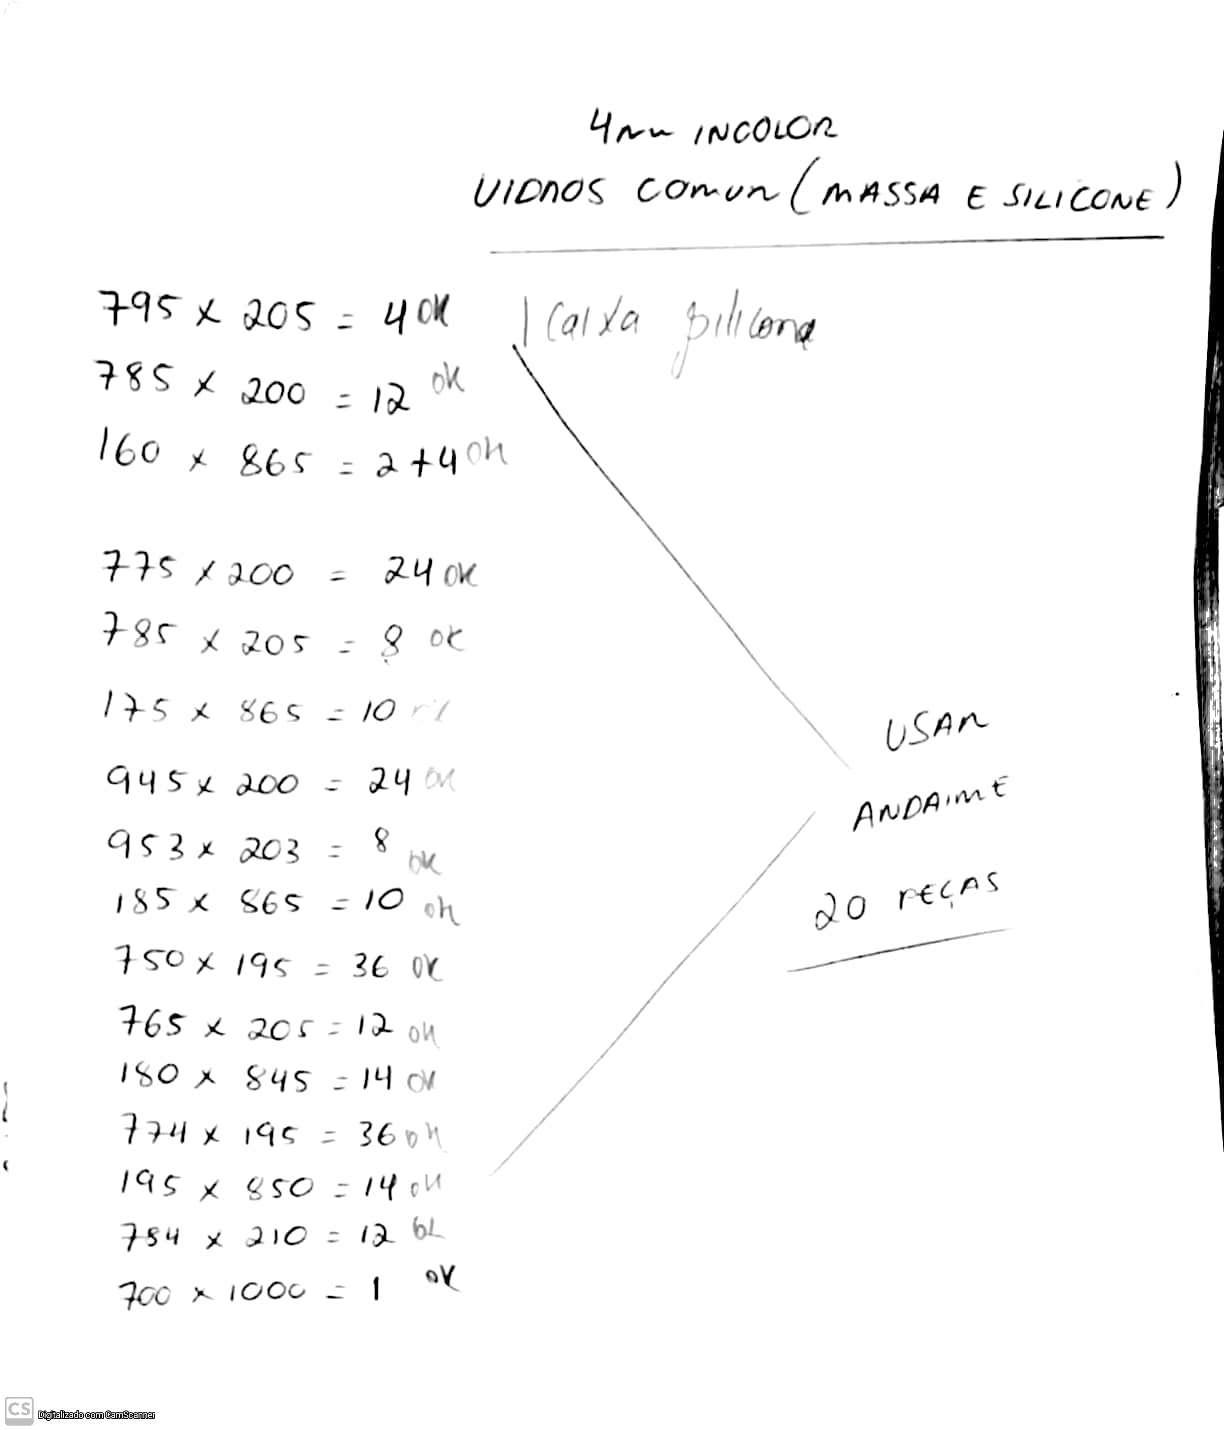 4mm INCOLOR
VIDROS COMUN (MASSA E SILICONE)
795 x 205 = 4 OK
1 Caixa silicone
785 x 200 = 12 OK
160 x 865 = 2+4 OK
775 x 200 = 24 OK
785 x 205 = 8 OK
175 x 865 = 10
945 x 200 = 24 OK
953 x 203 = 8 OK
185 x 865 = 10 OK
750 x 195 = 36 OK
765 x 205 = 12 OK
180 x 845 = 14 OK
774 x 195 = 36 OK
195 x 850 = 14 OK
784 x 210 = 12 OK
700 x 1000 = 1 OK
USAR
ANDAIME
20 PEÇAS
CS Digitalizado com CamScanner